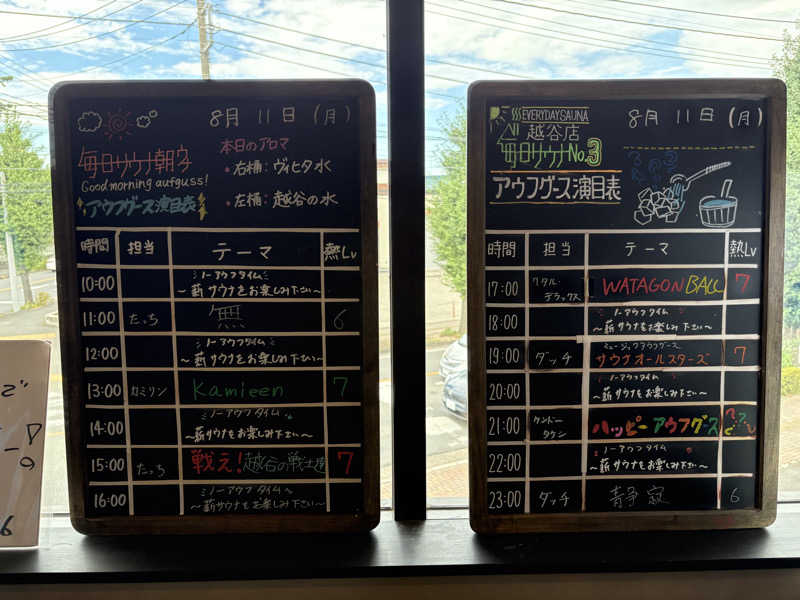 8月 11日 (月)
毎日サウナ朝宇
Good morning aufguss!
アウフグース演目表
本日のアロマ
・右桶: ヴィヒタ水
・左桶: 越谷の水
時間 担当 テーマ 熱Lv
10:00 ノーアウフタイム
～薪サウナをお楽しみ下さい～
11:00 たっち 無 6
12:00 ノーアウフタイム
～薪サウナをお楽しみ下さい～
13:00 カミリン Kamieen 7
14:00 ノーアウフタイム
～薪サウナをお楽しみ下さい～
15:00 たっち 戦え!越谷の戦士達 7
16:00 ノーアウフタイム
～薪サウナをお楽しみ下さい～
EVERYDAY SAUNA
越谷店
8月 11日 (月)
毎日サウナNo.3
アウフグース演目表
時間 担当 テーマ 熱Lv
17:00 ワタル・デラックス WATAGON BALL 7
18:00 ノーアウフタイム
～薪サウナをお楽しみ下さい～
ミュージックアウフグース
19:00 ダッチ サウナオールスターズ 7
20:00 ノーアウフタイム
～薪サウナをお楽しみ下さい～
21:00 ハッピーアウフグース ???
22:00 ノーアウフタイム
～薪サウナをお楽しみ下さい～
23:00 ダッチ 青争寂 6